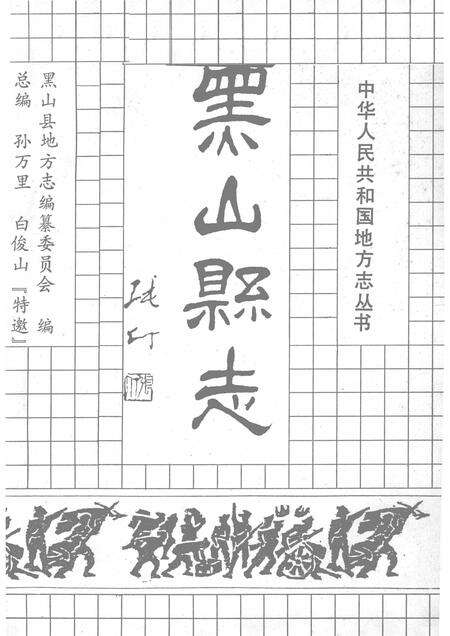 中华人民共和国地方志丛书
黑山縣志
黑山县地方志编纂委员会 编
总编 孙万里 白俊山『特邀』